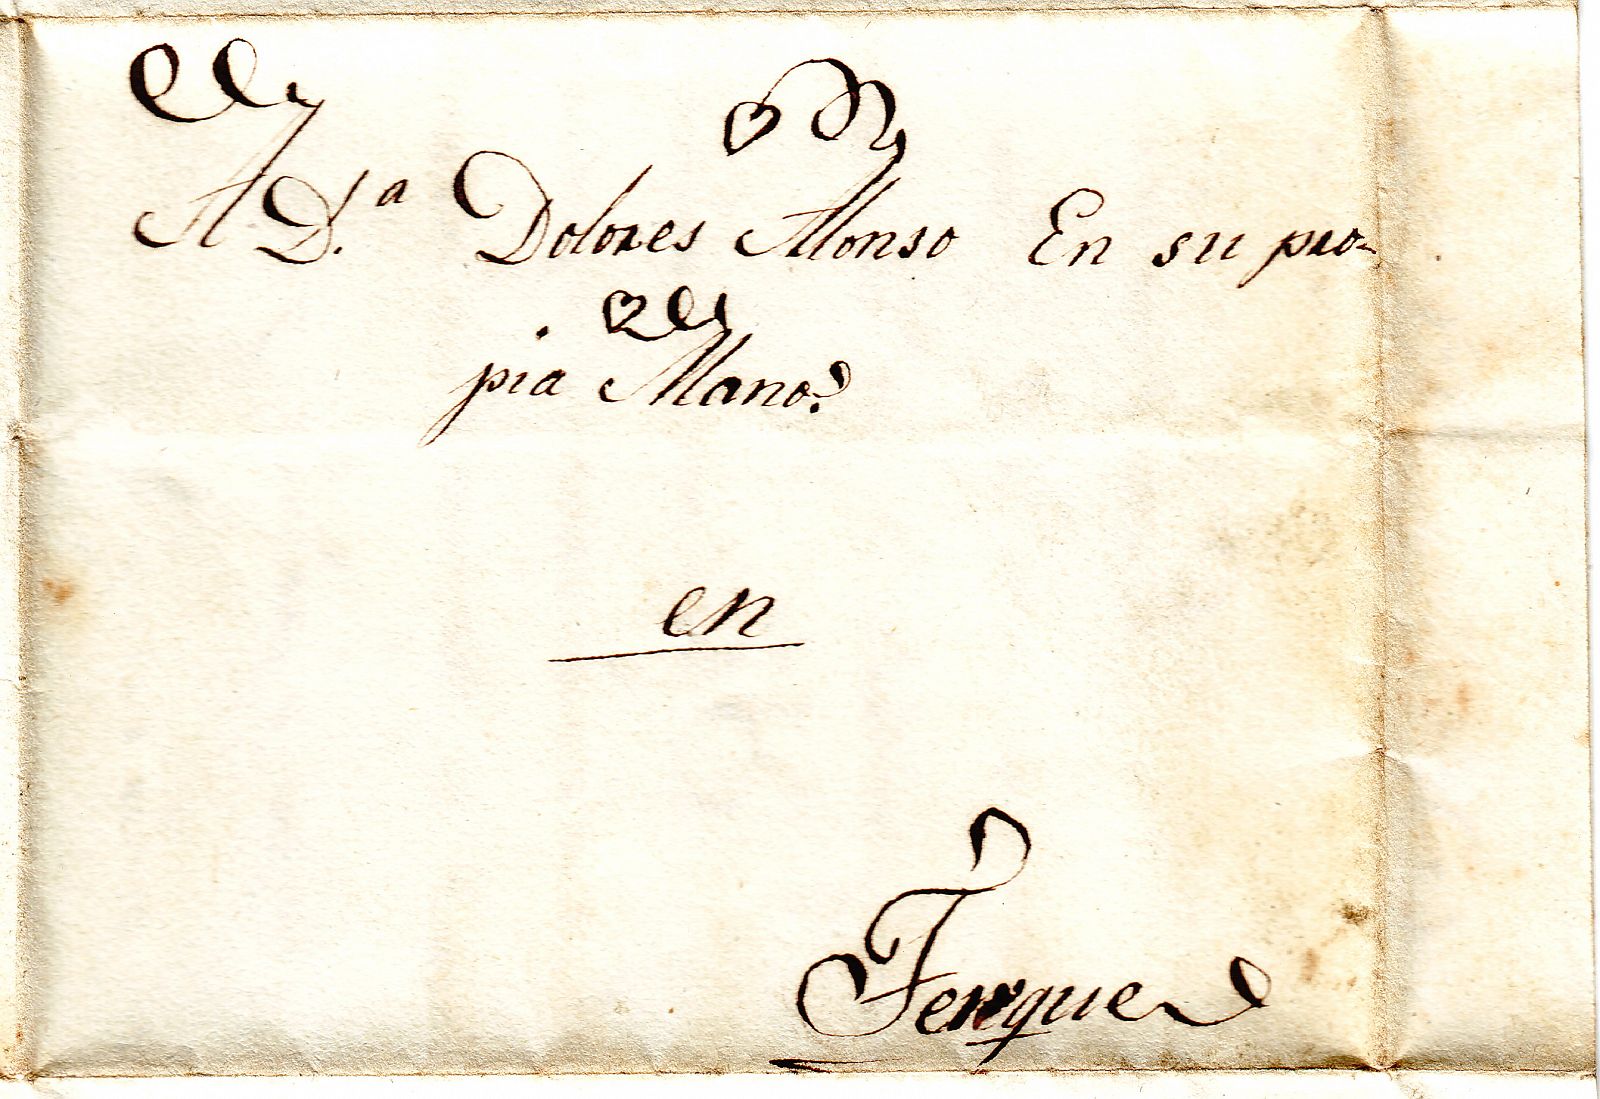 A D.ª Dolores Alonso En su pro-
pia Mano.
en